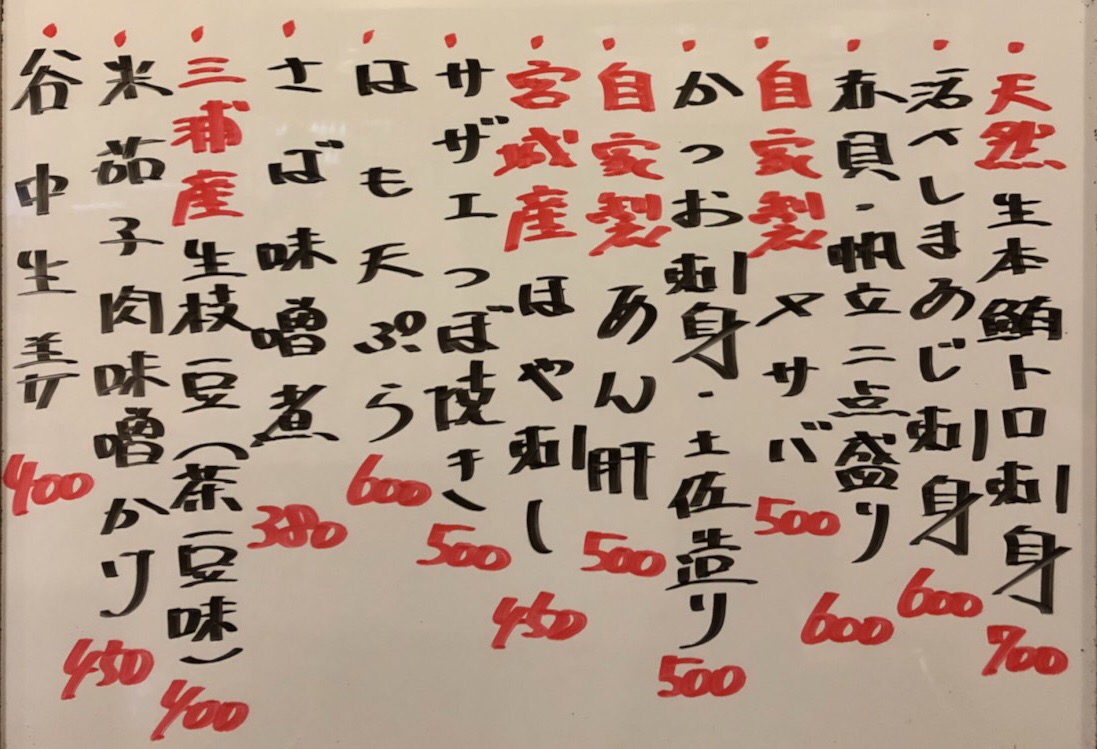 天然生本鮪トロ刺身 700
活〆しまあじ刺身 600
赤貝・帆立二点盛り 600
自家製〆サバ 500
かつお刺身・土佐造り 500
自家製あん肝 500
宮城産ほや刺し 450
サザエつぼ焼き 500
はも天ぷら 600
さば味噌煮 380
三浦産生枝豆(茶豆味) 400
米茄子肉味噌かけ 450
谷中生姜 400